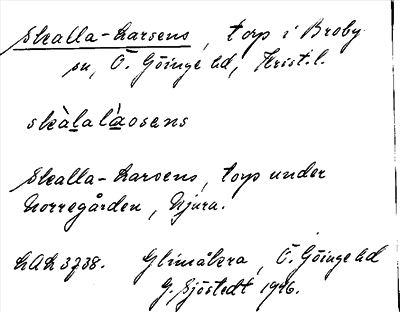 Skalla-Larsens, torp i Broby
sn, Ö. Göinge hd, Krist. l.
skàlalàosens
Skalla-Larsens, torp under
Norregården,
LAL 3738. Glimåkra, Ö. Göinge hd
G. Sjöstedt 1926.